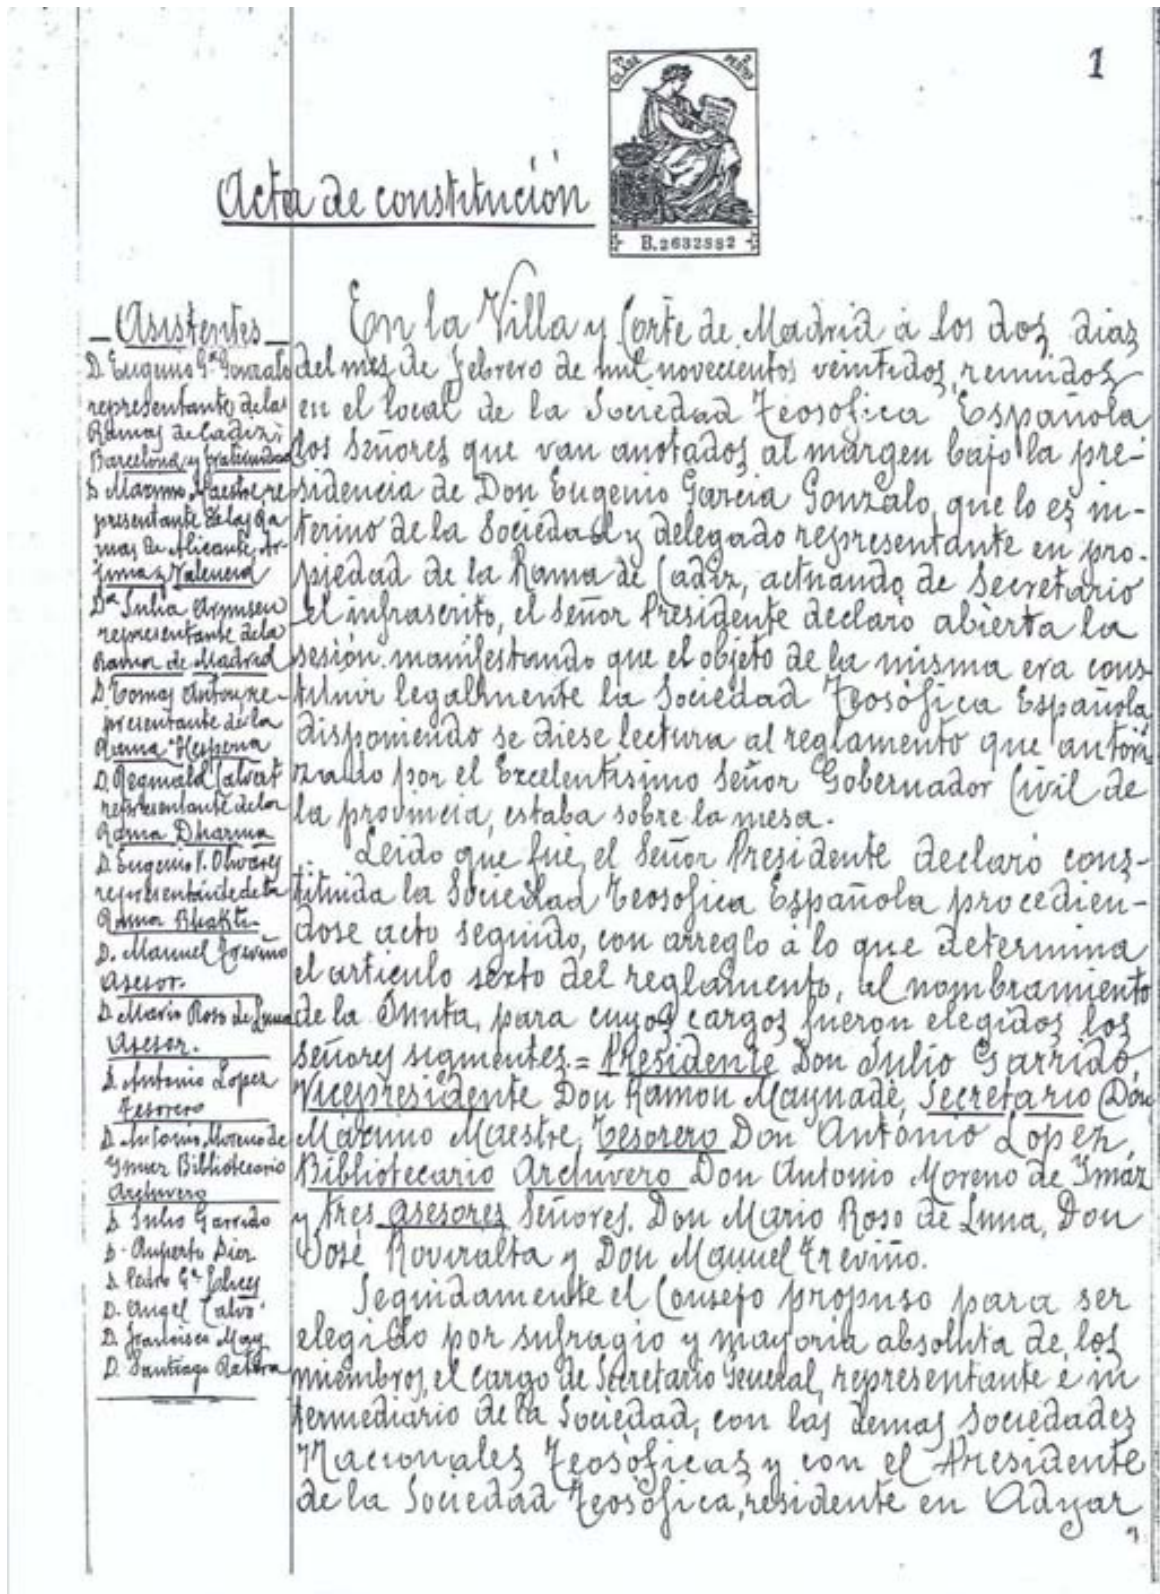 1
7ª CLASE 2 PESETAS
B.2632882
Acta de constitución
Asistentes
D. Eugenio Gª Gonzalo
representante de las
Ramas de Cadiz,
Barcelona y Fraternidad
D Maximo Maestre re
presentante de las Ra
mas de Alicante, Ar-
juna y Valencia
Dª Julia
representante de la
Rama de Madrid
D Tomas re-
presentante de la
Rama Hesperia
D. Reginald Calvert
representante de la
Rama Dharma
D. Eugenio P. Olivares
representante de la
Rama Bhakti
D. Manuel Treviño
asesor.
D. Mario Roso de Luna
Asesor.
D. Antonio Lopez
Tesorero
D. Antonio Moreno de
Ymaz Bibliotecario
Archivero
D. Julio Garrido
D. Ruperto
D. Pedro Gª
D. Angel Calvo
D. Francisco
D. Santiago
En la Villa y Corte de Madrid á los dos dias
del mes de febrero de mil novecientos veintidos, reunidos
en el local de la Sociedad Teosofica Española
los señores que van anotados al margen bajo la pre-
sidencia de Don Eugenio Garcia Gonzalo, que lo es in-
terino de la Sociedad y delegado representante en pro-
piedad de la Rama de Cadiz, actuando de Secretario
el infrascrito, el señor Presidente declaró abierta la
sesión manifestando que el objeto de la misma era cons-
tituir legalmente la Sociedad Teosófica Española,
disponiendo se diese lectura al reglamento que autori
zado por el Excelentisimo señor Gobernador Civil de
la provincia, estaba sobre la mesa.
Leido que fué, el Señor Presidente declaró cons-
tituida la Sociedad Teosofica Española procedien-
dose acto seguido, con arreglo á lo que determina
el articulo sexto del reglamento, al nombramiento
de la Junta, para cuyos cargos fueron elegidos los
señores siguientes = Presidente Don Julio Garrido,
Vicepresidente Don Ramon Maynadé, Secretario Don
Maximo Maestre, Tesorero Don Antonio Lopez,
Bibliotecario Archivero Don Antonio Moreno de Ymáz
y tres asesores Señores. Don Mario Roso de Luna, Don
José Roviralta y Don Manuel Treviño.
Seguidamente el Consejo propuso para ser
elegido por sufragio y mayoria absoluta de los
miembros, el cargo de Secretario General, representante é in
termediário de la Sociedad, con las demas Sociedades
Nacionales Teosóficas y con el Presidente
de la Sociedad Teosófica, residente en Adyar